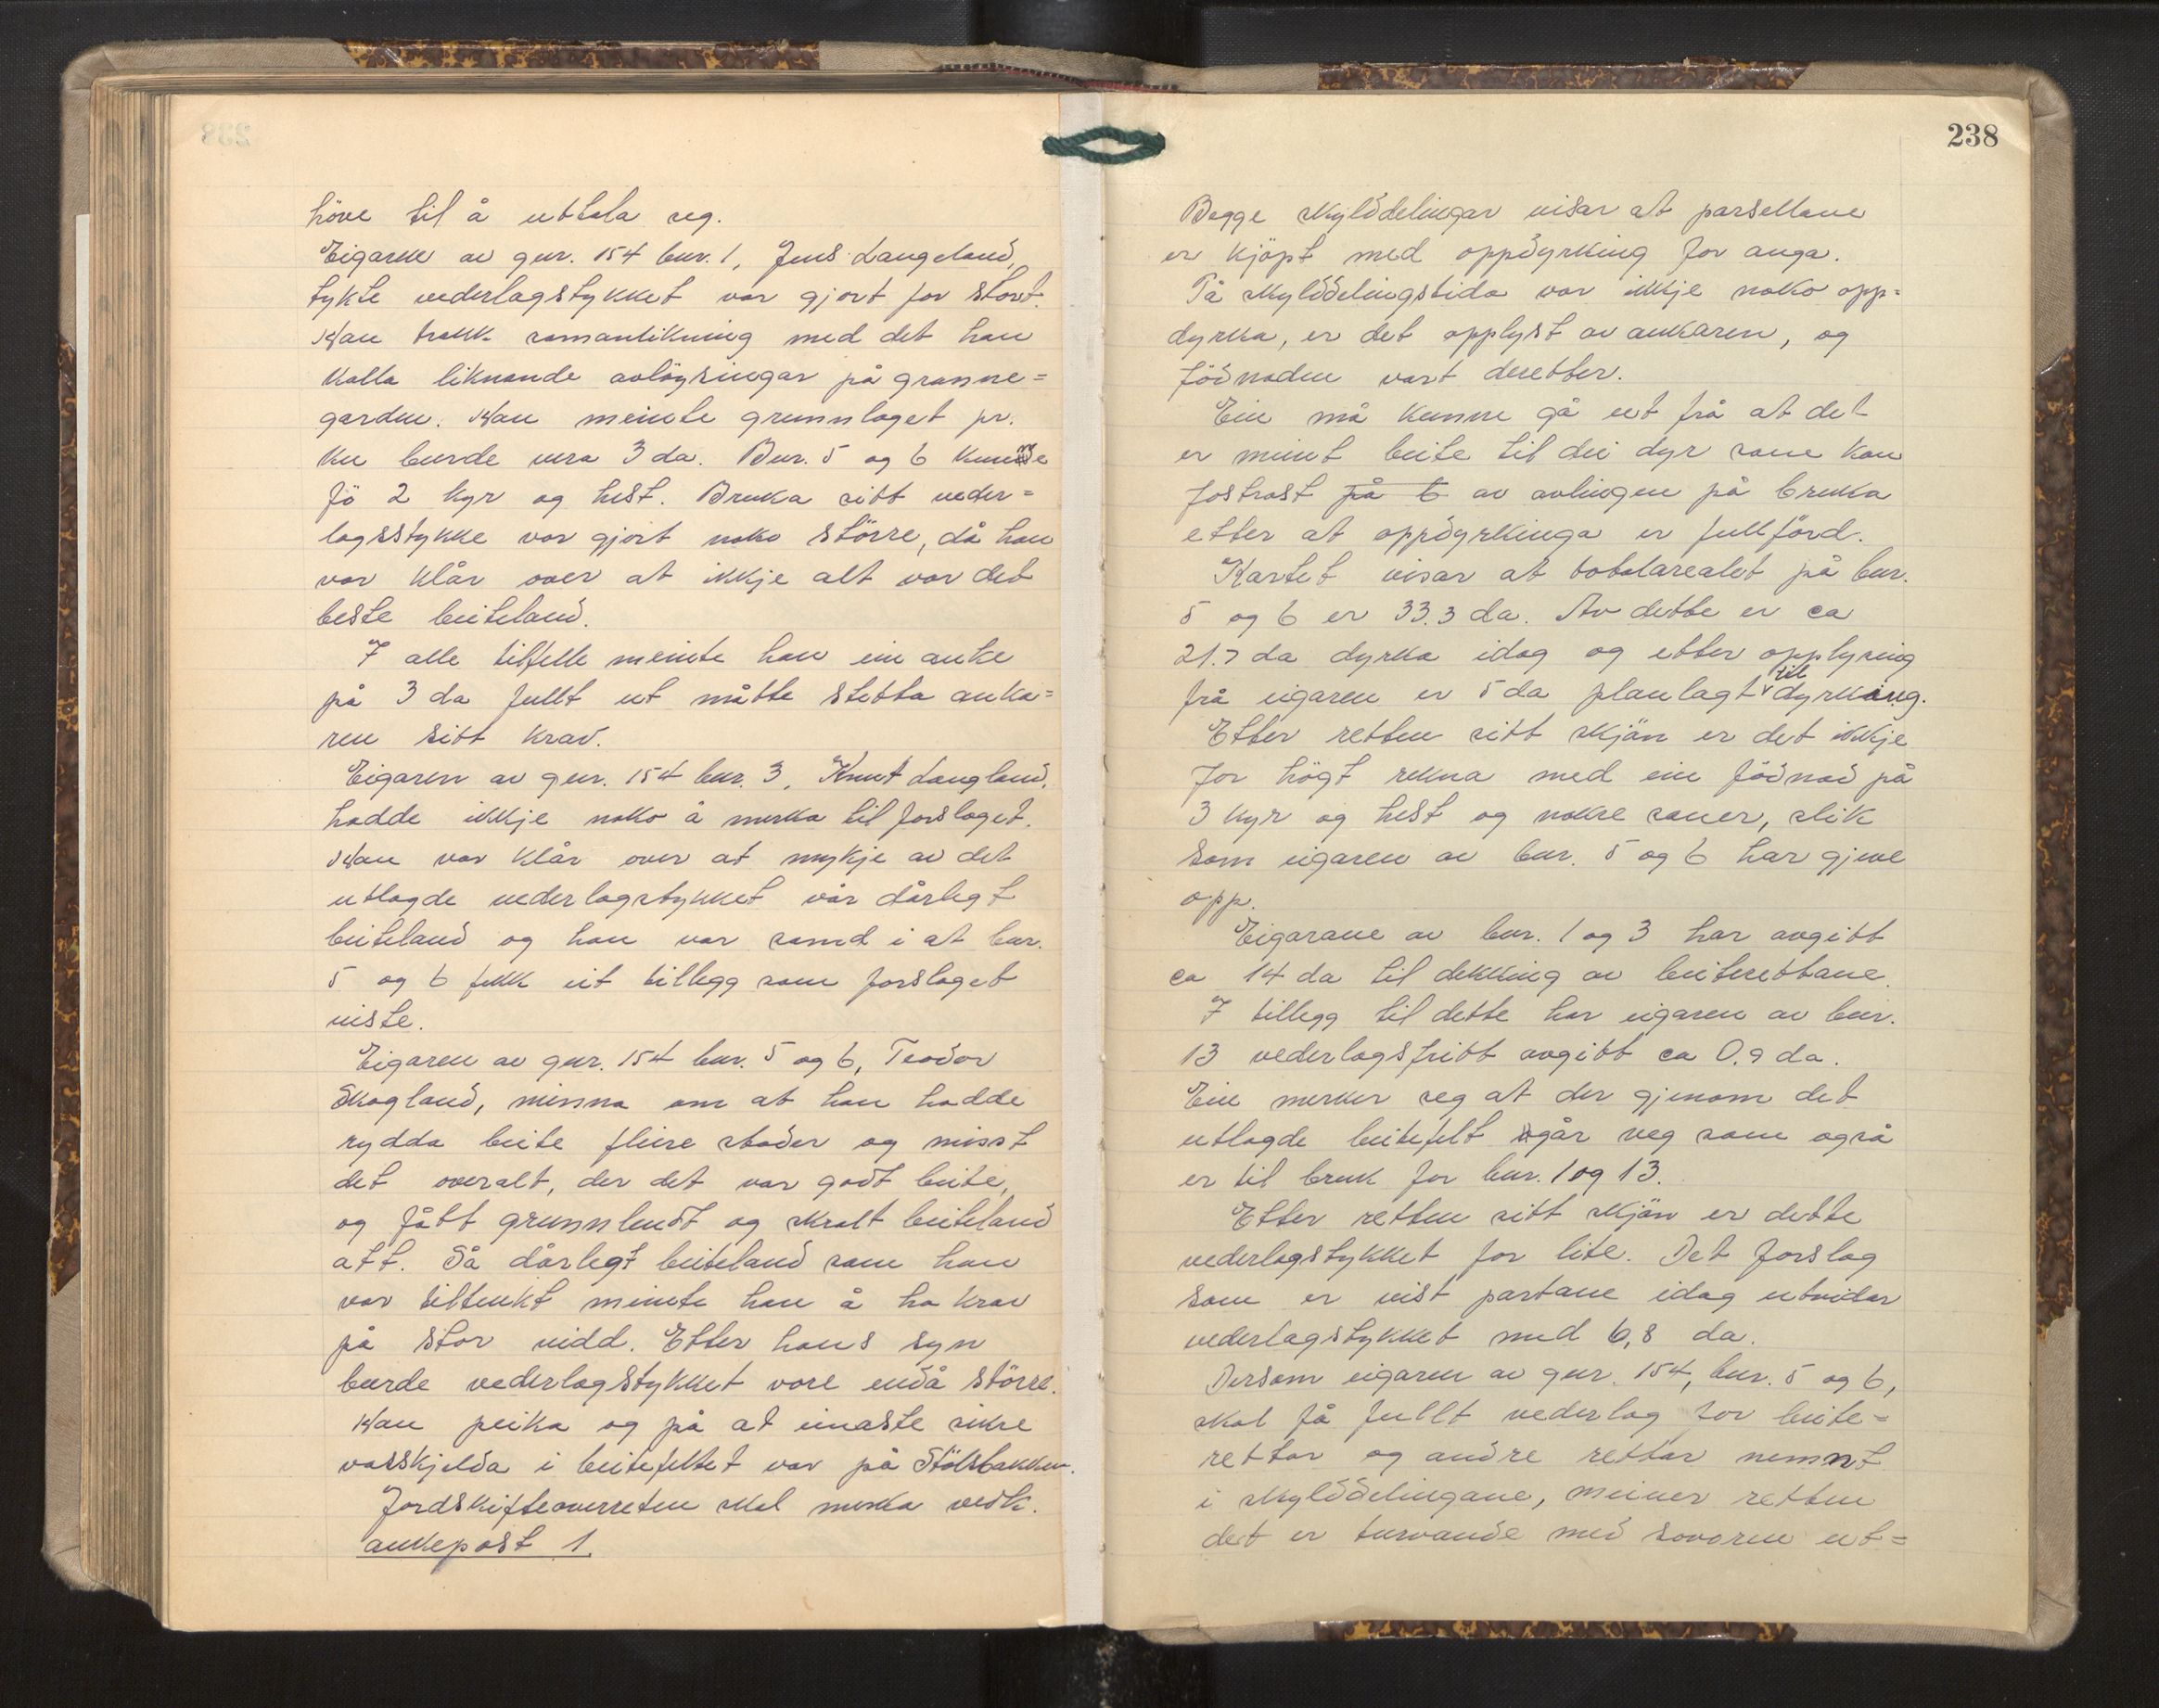 höve til å uttala seg.
Eigaren av gnr. 154 bnr. 1, Jens Langeland,
tykte vederlagstykket var gjort for stort.
Han trekk samanlikning med det han
kalla liknande avlöysingar på granne=
garden. Han meinte grunnlaget pr.
ku burde vera 3 da. Bnr. 5 og 6 kunne
fö 2 kyr og hest. Bruka sitt veder=
lagsstykke var gjort noko större, då han
var klår over at ikkje alt var det
beste beiteland.
I alle tilfelle meinte han ein auke
på 3 da fullt ut måtte stetta anka=
ren sitt krav.
Eigaren av gnr. 154 bnr. 3, Knut Langland,
hadde ikkje noko å merka til forslaget.
Han var klår over at mykje av det
utlagde vederlagstykket var dårlegt
beiteland og han var samd i at bnr.
5 og 6 fekk eit tillegg som forslaget
viste.
Eigaren av gnr. 154 bnr. 5 og 6, Teodor
Skogland, minna om at han hadde
rydda beite fleire stader og misst
det overalt, der det var godt beite,
og fått grunnlendt og skralt beiteland
att. Så dårlegt beiteland som han
var tiltenkt meinte han å ha krav
på stor vidd. Etter hans syn
burde vederlagstykket vore endå större.
Han peika og på at einaste sikre
vasskjelda i beitefeltet var på Stölsbakken.
Jordskifteoverretten skal merka vedk.
ankepost 1.
238
Begge skylddelingar visar at parsellane
er kjöpt med oppdyrking for auga.
På skylddelingstida var ikkje noko opp=
dyrka, er det opplyst av ankaren, og
födnaden vart deretter.
Ein må kunne gå ut frå at det
er meint beite til dei dyr som kan
fostrast på 6 av avlingen på bruka
etter at oppdyrkinga er fullförd.
Kartet visar at totalarealet på bnr.
5 og 6 er 33.3 da. Av dette er ca
21.7 da dyrka idag og etter opplysing
frå eigaren er 5 da planlagt til dyrking.
Etter retten sitt skjön er det ikkje
for högt rekna med ein födnad på
3 kyr og hest og nokre sauer, slik
som eigaren av bnr. 5 og 6 har gjeve
opp.
Eigarane av bnr. 1 og 3 har avgitt
ca 14 da til dekking av beiterettane.
I tillegg til dette har eigaren av bnr.
13 vederlagsfritt avgitt ca 0.9 da.
Ein merker seg at der gjenom det
utlagde beitefelt går veg som også
er til bruk for bnr. 1 og 13.
Etter retten sitt skjön er dette
vederlagstykket for lite. Det forslag
som er vist partane idag utvidar
vederlagstykket med 6,8 da.
Dersom eigaren av gnr. 154, bnr. 5 og 6,
skal få fullt vederlag for beite=
rettar og andre rettar nemnt
i skylddelingane, meiner retten
det er turvande med sovoren ut=